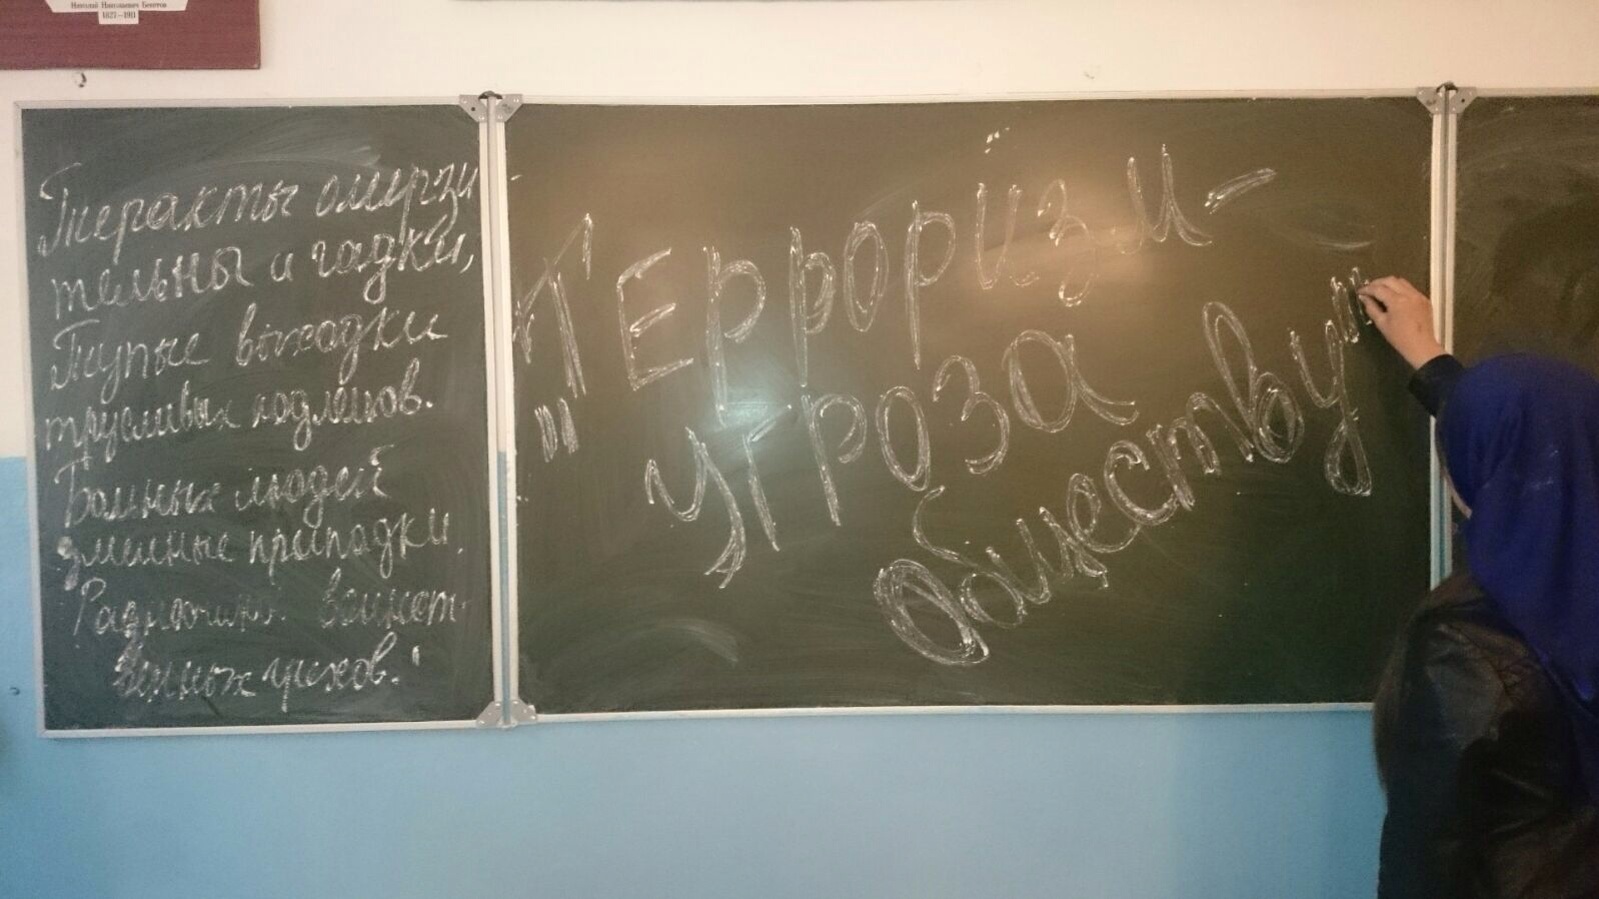 Николай Николаевич Бекетов
1827–1911
Теракты омерзи
тельны и гадки,
Тупые выходки
трусливых подлецов.
Больных людей
змеиные припадки.
вених цехов!
"Терроризм –
угроза
обществу"